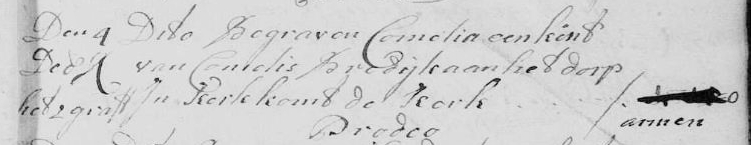 Den 4 Dito Begraven Cornelia een kint
van Cornelis Brodijk aan het dorp
het 2 graff In Kerk komt de Kerk
armen
Prodeo